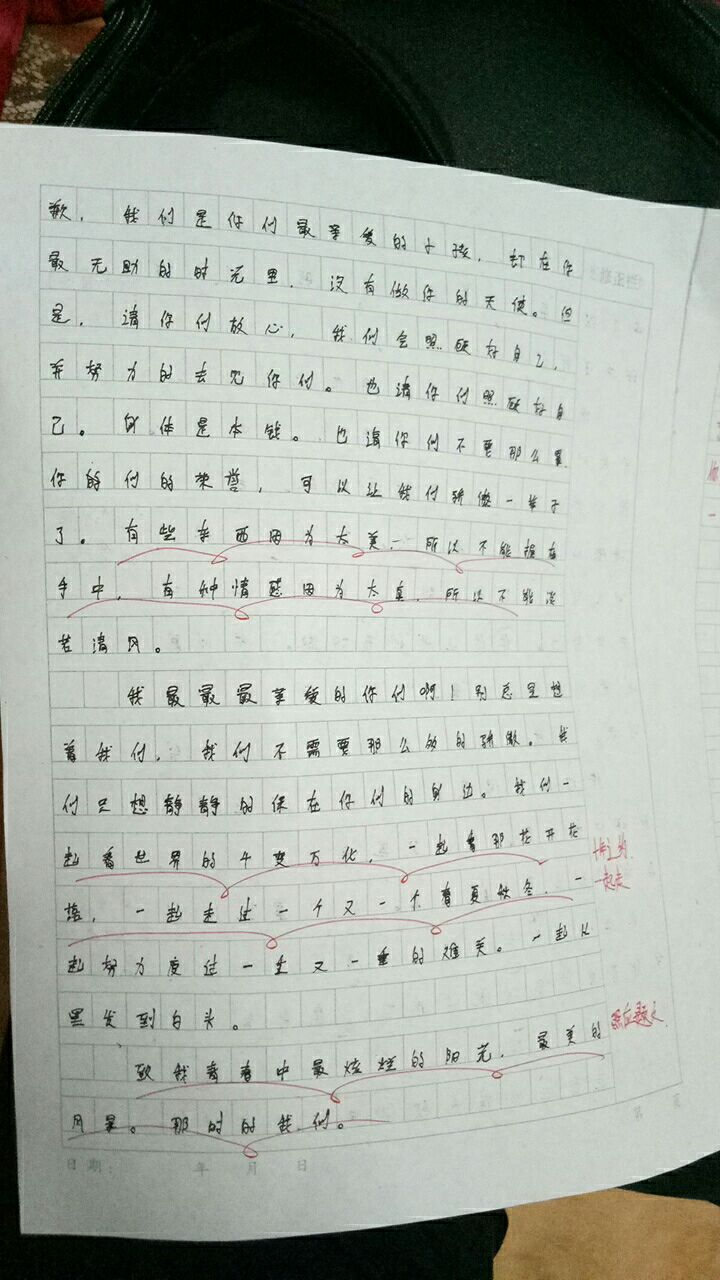 歉，我们是你们最亲爱的小孩，却在你
最无助的时光里，没有做你的天使。但
是，请你们放心，我们会照顾好自己，
并努力的去见你们。也请你们照顾好自
己。身体是本钱。也请你们不要那么累
你的们的荣誉，可以让我们骄傲一辈子
了。有些东西因为太美，所以不能握在
手中，有种情感因为太真，所以不能淡
若清风。
我最最最亲爱的你们啊！别总是想
着我们，我们不需要那么多的骄傲。我
们只想静静的保在你们的身边。我们一
起看世界的千变万化，一起看那花开花
落，一起走过一个又一个春夏秋冬，一
起努力度过一生又一重的难关。一起从
黑发到白头。
致我青春中最炫烂的阳光，最美的
风景。那时的我们。
照应题
日期： 年 月 日
第 页